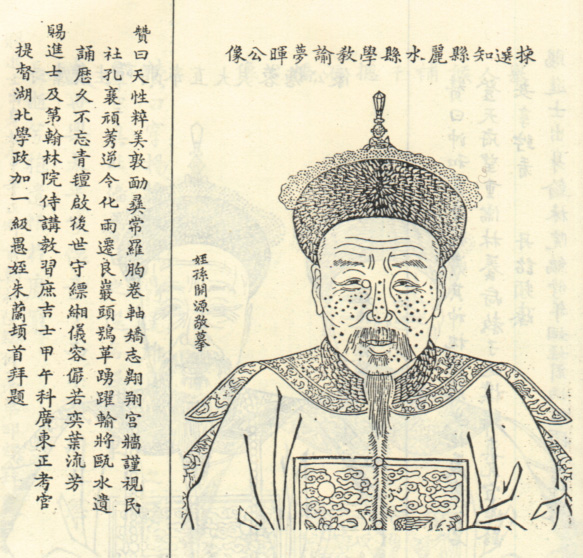 揀選知縣麗水縣學教諭夢暉公像
姪孫開源敬摹
贊曰天性粹美敦勵彝常羅胸卷軸矯志翱翔宮牆謹視民
社孔襄頑莠逆令化雨遷良巖頭鴞革踴躍輸將甌水遺
誦歷久不忘青氈啟後世守縹緗儀容儼若奕葉流芳
賜進士及第翰林院侍講教習庶吉士甲午科廣東正考官
提督湖北學政加一級愚姪朱蘭頓首拜題